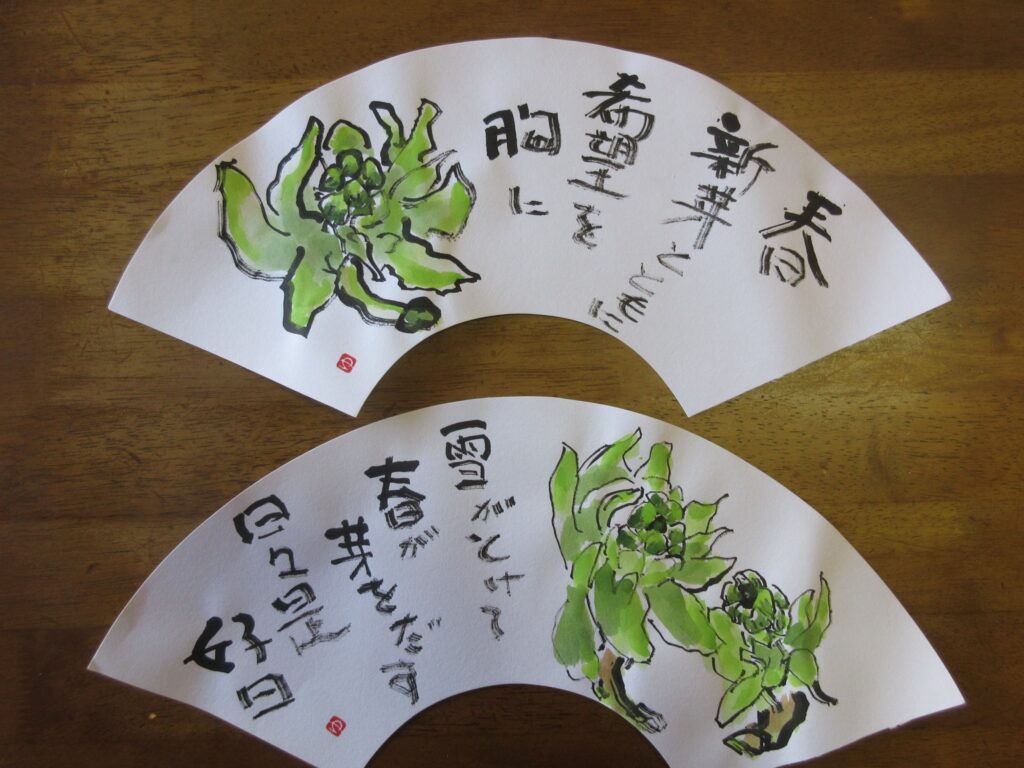 春
新芽とともに
希望を
胸に
ゆ
雪がとけて
春が
芽をだす
日々是
好日
ゆ